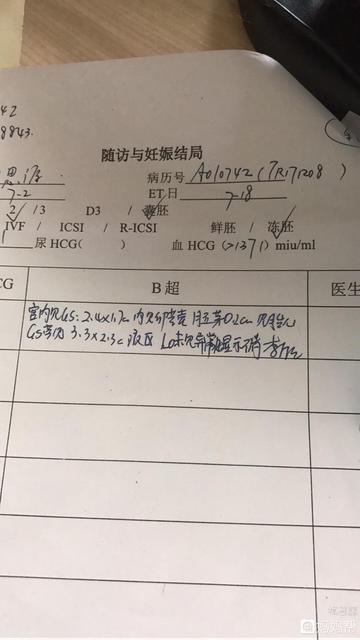 42
8843.
随访与妊娠结局
病历号 A010742 (TR171208)
7-2 ET日 7-18
2 /3 D3 / 囊胚
IVF / ICSI / R-ICSI 鲜胚 / 冻胚
尿HCG( ) 血 HCG (>1371) miu/ml
CG B 超 医生
宫内见GS: 2.4x1.7cm 内见卵黄囊 0.2cm
GS旁为 3.3x2.3c 液区 显示
妈妈帮